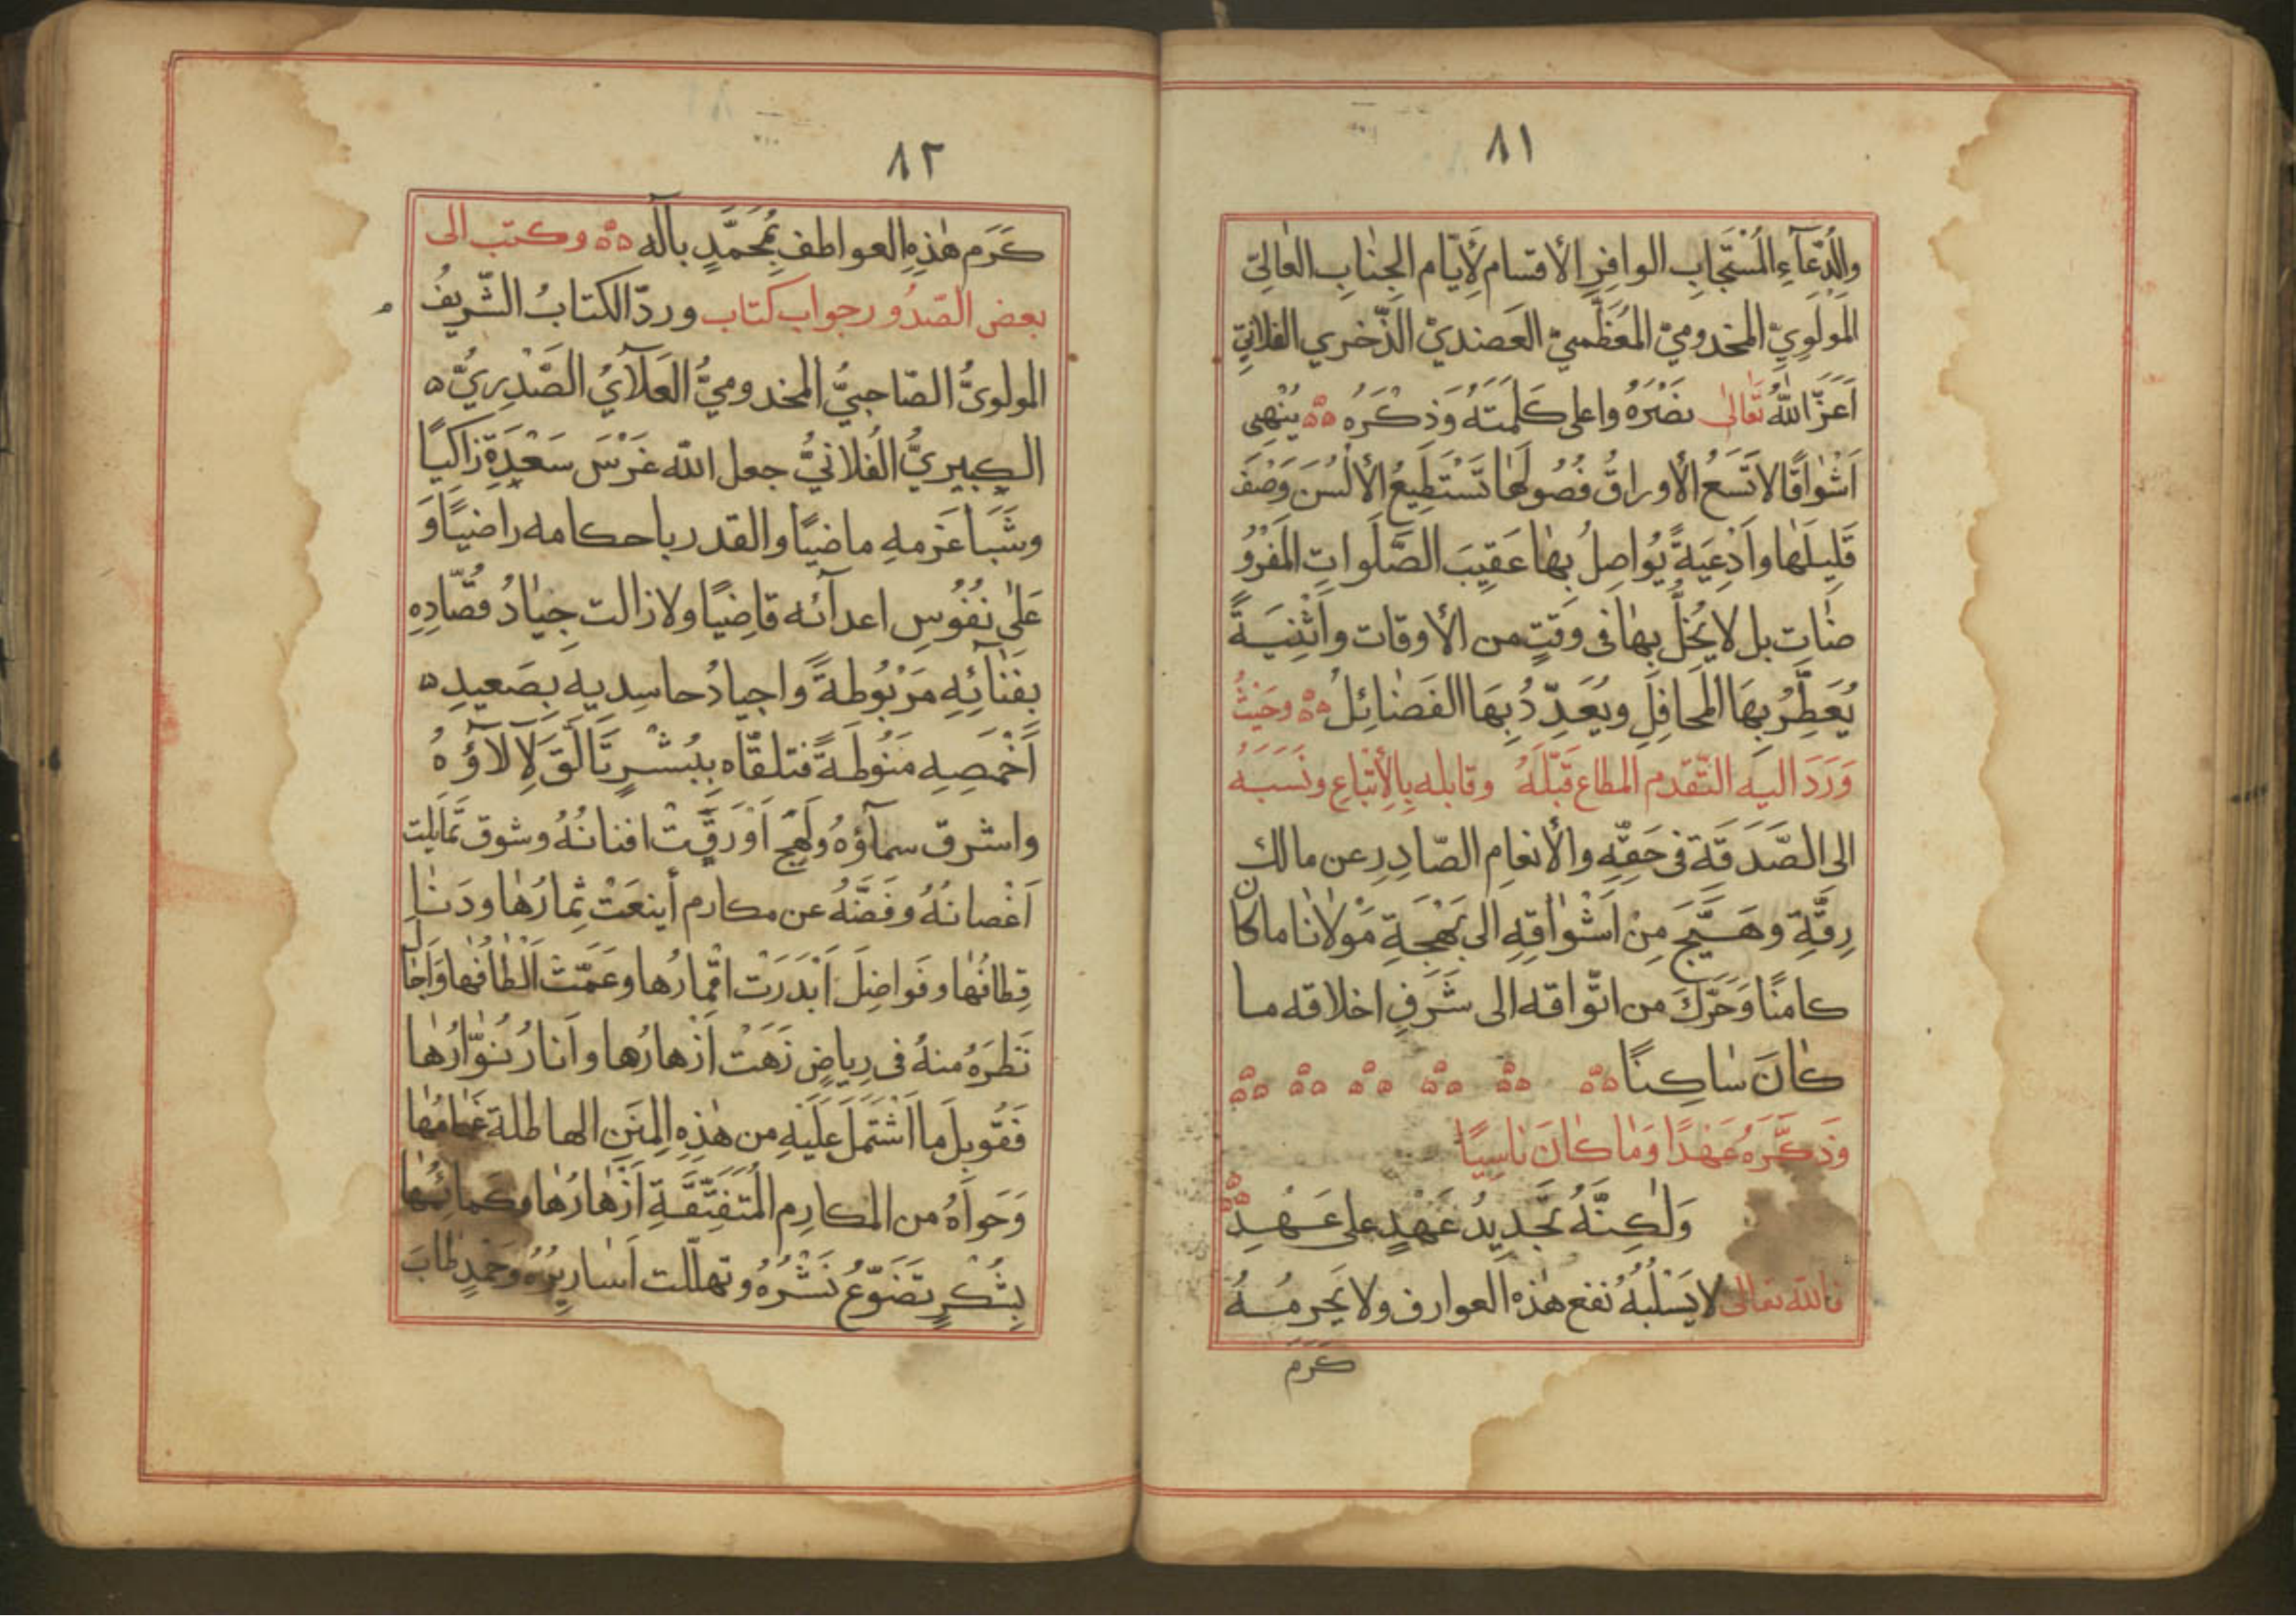 ٨١
والدُّعَآءِ المُسْتَجَابِ الوافِرِ الأقسام لأَيّام الجنٰابِ العٰالِيّ
المَوْلَوِيّ المخدوميّ المُعَظَّميّ العَضُديّ الذّخري الفلانيّ
اَعَزَّ اللهُ تَعٰالىٰ نَصْرَهُ واعلى كَلِمَتَهُ وَذِكْرَهُ يُنْهِى
اَشْوٰاقًا لا تَسَعُ الأوراقُ فُصُولَهٰا تَسْتَطِيعُ الألْسُنَ وَصْفَ
قَلِيلَهٰا واَدْعِيَةً يُواصِلُ بِهٰا عَقِيبَ الصَّلَواتِ المَفْرُو
ضٰاتِ بل لا يُخِلُّ بِهٰا فى وَقتٍ من الأوقات واَثْنِيَةً
يُعَطِّرُ بِهَا المَحَافِلَ ويُعَدِّدُ بِهَا الفَضٰائِلُ وحَيْثُ
وَرَدَ اليه التّقدم المطاع قَبَّلَهُ وقابله بِالأتْباعِ ونَسَبَهُ
الى الصَّدَقَة فى حَقِّهِ والأنعٰامِ الصّادِرِ عن مالك
رِقَّةِ وهَيَّجَ مِنْ اَشْوٰاقِهِ الى بَهْجَةِ مَوْلانٰا ما كان
كامنًا وَحَرَّكَ من اتّواقه الى شَرَفِ اخلاقه ما
كٰانَ سٰاكِنًا
وَذَكَّرَهُ عَهْدًا وَمٰا كٰانَ نٰاسِيًا
وَلٰكِنَّهُ تَجْدِيدُ عَهْدٍ على عَهْدِ
فالله تعالى لا يَسْلُبُهُ نفع هٰذه العوارف ولا يَحرمُهُ
كَرَمَ
٨٢
كَرَم هٰذِهِ العواطف بِمُحَمَّدٍ بآله وكتب الى
بعض الصّدُور جواب كتاب وردّ الكتابُ الشّريفُ
المولوىُّ الصّاحبيُّ المخدوميُّ العَلآئيُ الصَّدْرِيُّ
الكبيريُّ الفُلانيُّ جعل الله غَرْسَ سَعْدِهِ زاكيًا
وشَبَا عَزمهِ ماضيًا والقدر باحكامه راضيًا وَ
عَلىٰ نُفُوسِ اعدآئه قاضِيًا ولا زالت جِيٰادُ قصّادِهِ
بِفَنٰائِهِ مَرْبُوطَةً واجيادُ حاسِديه بِصَعيدِ
اَخْمَصِهِ مَنُوطَةً فتلقّاه بِبُشْرٍ تَأَلَّقَ لآلاؤُهُ
واشرق سمآؤهُ ولَهَجٍ اَوْرَقَتْ افنانُهُ وشوق تَمَايلت
اَغْصانُهُ وفَضَّهُ عن مكارم أينعَتْ ثِمارُهٰا ودَنٰا
قِطافُهٰا وفَواضِلَ اَبْدَرَتْ اقْمارُها وعَمّتْ اَلْطٰافُهٰا وَاَجٰالَ
نَظَرَهُ منهُ فى رِياضٍ زَهَتْ اَزْهارُها واَنارَ نُوّارُهٰا
فَقُوبِلَ ما اَشْتَمَلَ عَلَيْهِ من هٰذِهِ المِنَنِ الهاطلة غَمٰامُهٰا
وَحَواَهُ من المكارِم المُتَفَتِّقَةِ اَزْهٰارُهٰا وكَمائِمُهٰا
بِشُكْرٍ تضَوّعُ نَشْرُهُ وتهلّلت اَسٰاريرُهُ وحَمْدٍ طٰابَ